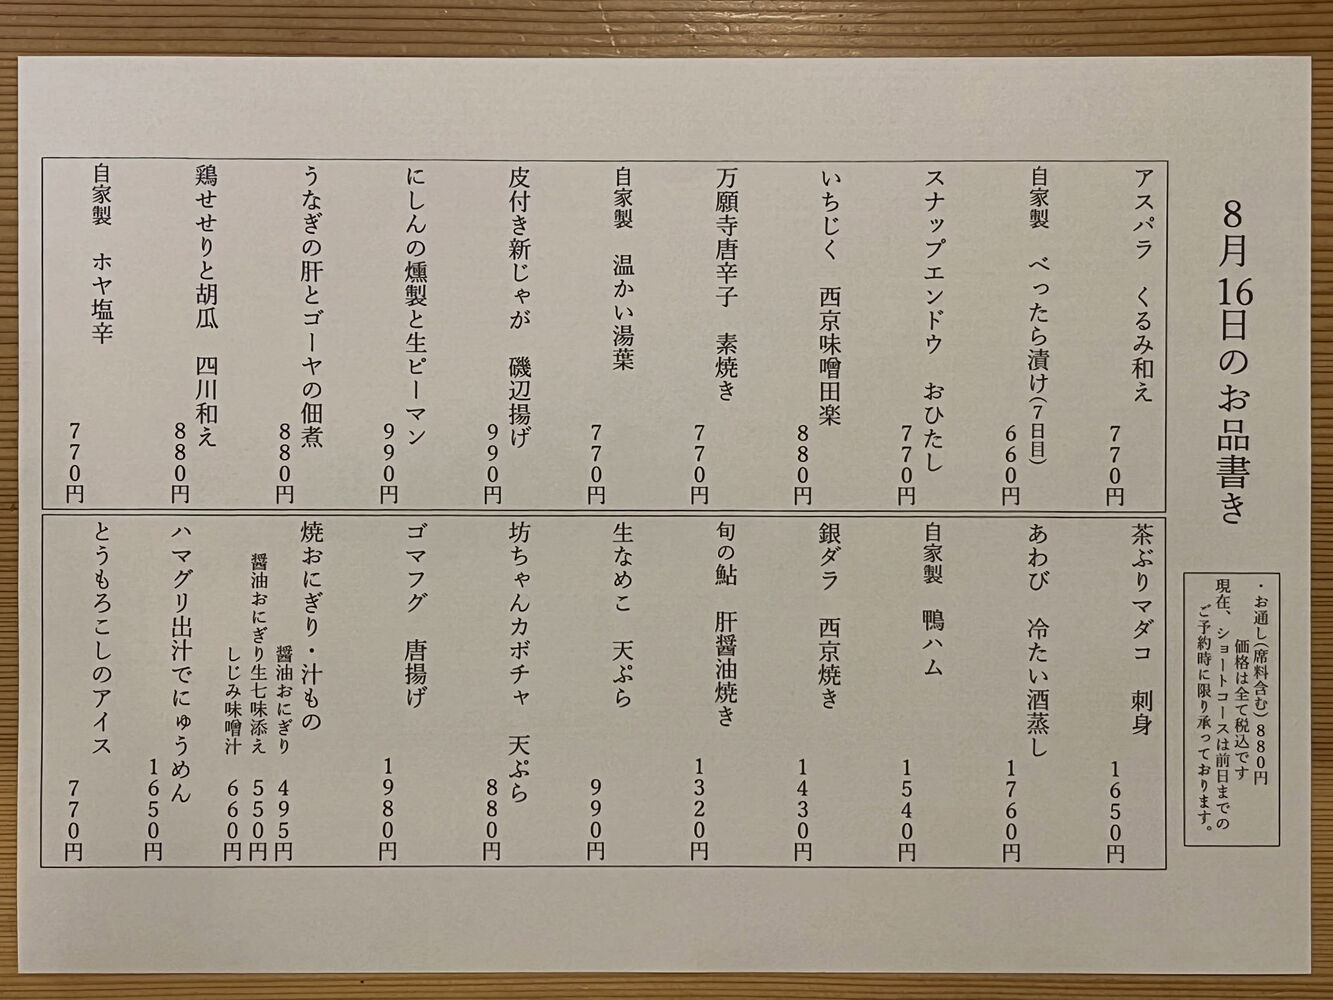 8月16日のお品書き
・お通し(席料含む) 880円
価格は全て税込です
現在、ショートコースは前日までの
ご予約時に限り承っております。
アスパラ くるみ和え
770円
自家製 べったら漬け(7日目)
660円
スナップエンドウ おひたし
770円
いちじく 西京味噌田楽
880円
万願寺唐辛子 素焼き
770円
自家製 温かい湯葉
770円
皮付き新じゃが 磯辺揚げ
990円
にしんの燻製と生ピーマン
990円
うなぎの肝とゴーヤの佃煮
880円
鶏せせりと胡瓜 四川和え
880円
自家製 ホヤ塩辛
770円
茶ぶりマダコ 刺身
1650円
あわび 冷たい酒蒸し
1760円
自家製 鴨ハム
1540円
銀ダラ 西京焼き
1430円
旬の鮎 肝醤油焼き
1320円
生なめこ 天ぷら
990円
坊ちゃんカボチャ 天ぷら
880円
ゴマフグ 唐揚げ
1980円
焼おにぎり・汁もの
醤油おにぎり 495円
醤油おにぎり生七味添え 550円
しじみ味噌汁 660円
ハマグリ出汁でにゅうめん
1650円
とうもろこしのアイス
770円